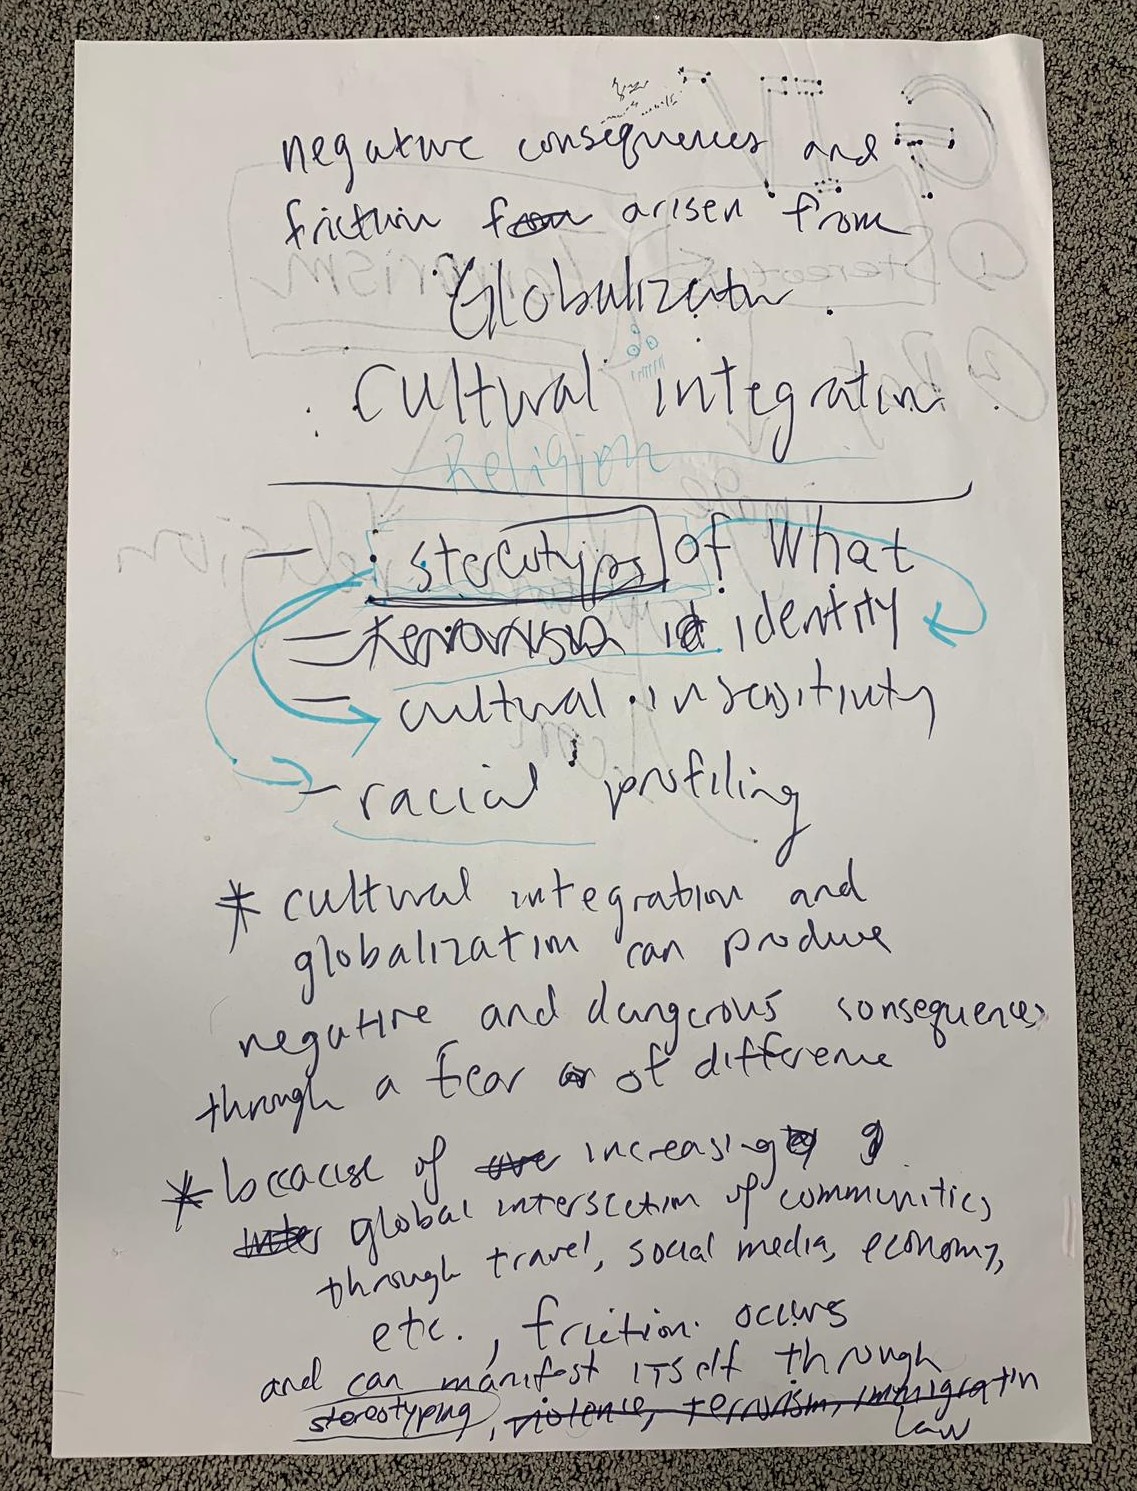 negative consequences and
friction from arisen from
Globalization
Cultural integration
Religion
- stereotypes of what
- terrorism id identity
- cultural insensitivity
- racial profiling
* cultural integration and
globalization can produce
negative and dangerous consequences
through a fear of difference
* because of increasing
global intersection of communities
through travel, social media, economy,
etc., friction occurs
and can manifest itself through
stereotyping, violence, terrorism, immigration
law